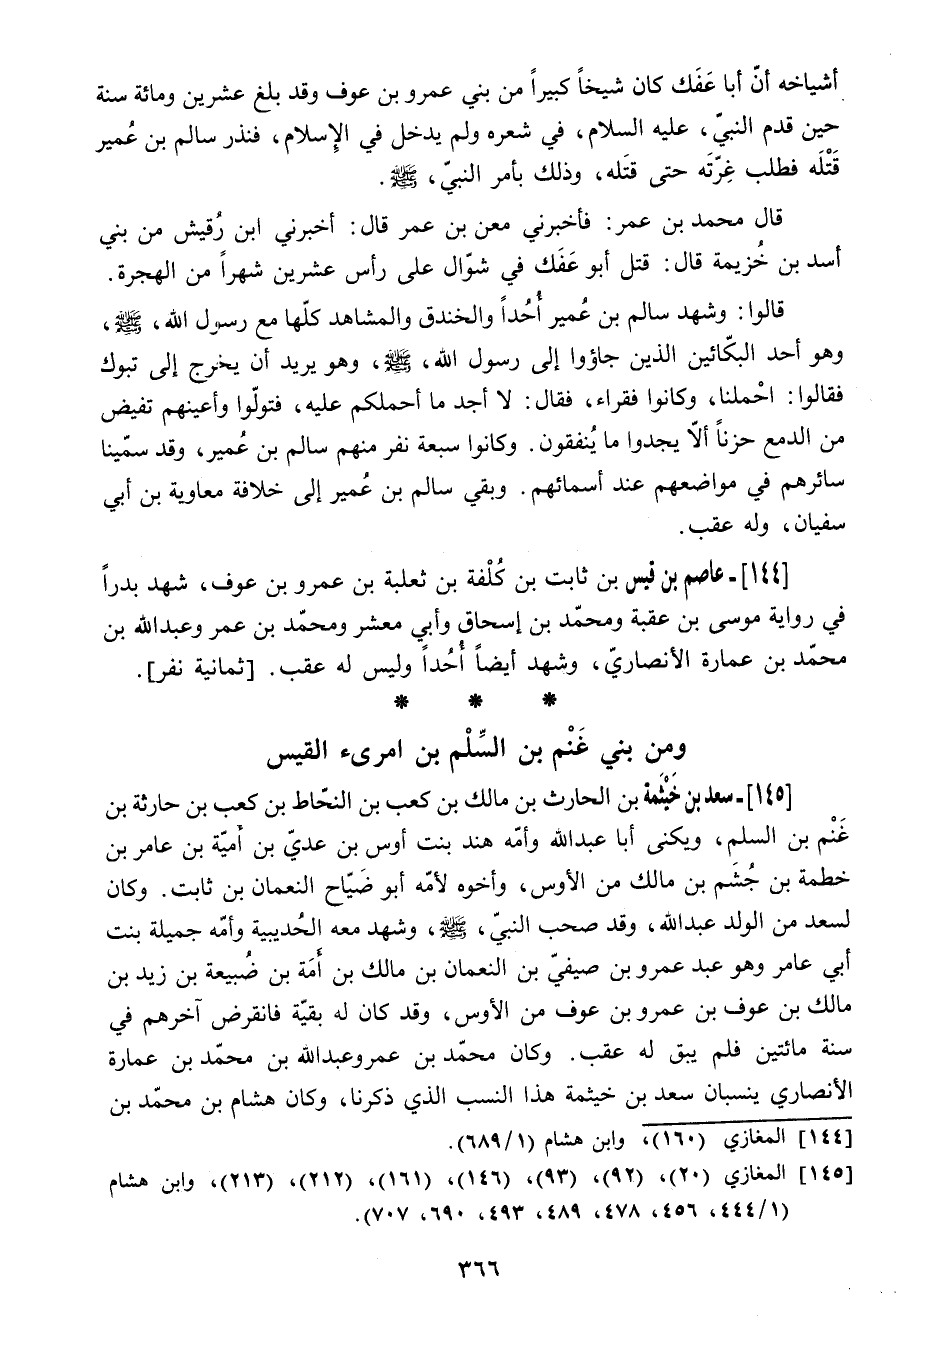 أشياخه أنّ أبا عَفَك كان شيخاً كبيراً من بني عمرو بن عوف وقد بلغ عشرين ومائة سنة
حين قدم النبيّ، عليه السلام، في شعره ولم يدخل في الإسلام، فنذر سالم بن عُمير
قَتْلَه فطلب غِرّتَه حتى قتَله، وذلك بأمر النبيّ، ﷺ.
قال محمد بن عمر: فأخبرني معن بن عمر قال: أخبرني ابن رُقيش من بني
أسد بن خُزيمة قال: قتل أبو عَفَك في شوّال على رأس عشرين شهراً من الهجرة.
قالوا: وشهد سالم بن عُمير أُحُداً والخندق والمشاهد كلّها مع رسول الله، ﷺ،
وهو أحد البكّائين الذين جاؤوا إلى رسول الله، ﷺ، وهو يريد أن يخرج إلى تبوك
فقالوا: احْملنا، وكانوا فقراء، فقال: لا أجد ما أحملكم عليه، فتولّوا وأعينهم تفيض
من الدمع حزناً ألاّ يجدوا ما يُنفقون. وكانوا سبعة نفر منهم سالم بن عُمير، وقد سمّينا
سائرهم في مواضعهم عند أسمائهم. وبقي سالم بن عُمير إلى خلافة معاوية بن أبي
سفيان، وله عقب.
[١٤٤] ـ عاصم بن قيس بن ثابت بن كُلْفة بن ثعلبة بن عمرو بن عوف، شهد بدراً
في رواية موسى بن عقبة ومحمّد بن إسحاق وأبي معشر ومحمّد بن عمر وعبدالله بن
محمّد بن عمارة الأنصاريّ، وشهد أيضاً أُحُداً وليس له عقب. [ثمانية نفر].
* * *
ومن بني غَنْم بن السِّلْم بن امرىء القيس
[١٤٥] ـ سعد بن خَيْثَمة بن الحارث بن مالك بن كعب بن النحّاط بن كعب بن حارثة بن
غَنْم بن السلم، ويكنى أبا عبدالله وأمّه هند بنت أوس بن عديّ بن أميّة بن عامر بن
خطمة بن جُشَم بن مالك من الأوس، وأخوه لأمّه أبو ضَيّاح النعمان بن ثابت. وكان
لسعد من الولد عبدالله، وقد صحب النبيّ، ﷺ، وشهد معه الحُديبية وأمّه جميلة بنت
أبي عامر وهو عبد عمرو بن صيفيّ بن النعمان بن مالك بن أَمَة بن ضُبيعة بن زيد بن
مالك بن عوف بن عمرو بن عوف من الأوس، وقد كان له بقيّة فانقرض آخرهم في
سنة مائتين فلم يبق له عقب. وكان محمّد بن عمر وعبدالله بن محمّد بن عمارة
الأنصاري ينسبان سعد بن خيثمة هذا النسب الذي ذكرنا، وكان هشام بن محمّد بن
[١٤٤] المغازي (١٦٠)، وابن هشام (٦٨٩/١).
[١٤٥] المغازي (٢٠)، (٩٢)، (٩٣)، (١٤٦)، (١٦١)، (٢١٢)، (٢١٣)، وابن هشام
(٤٤٤/١، ٤٥٦، ٤٧٨، ٤٨٩، ٤٩٣، ٦٩٠، ٧٠٧).
٣٦٦